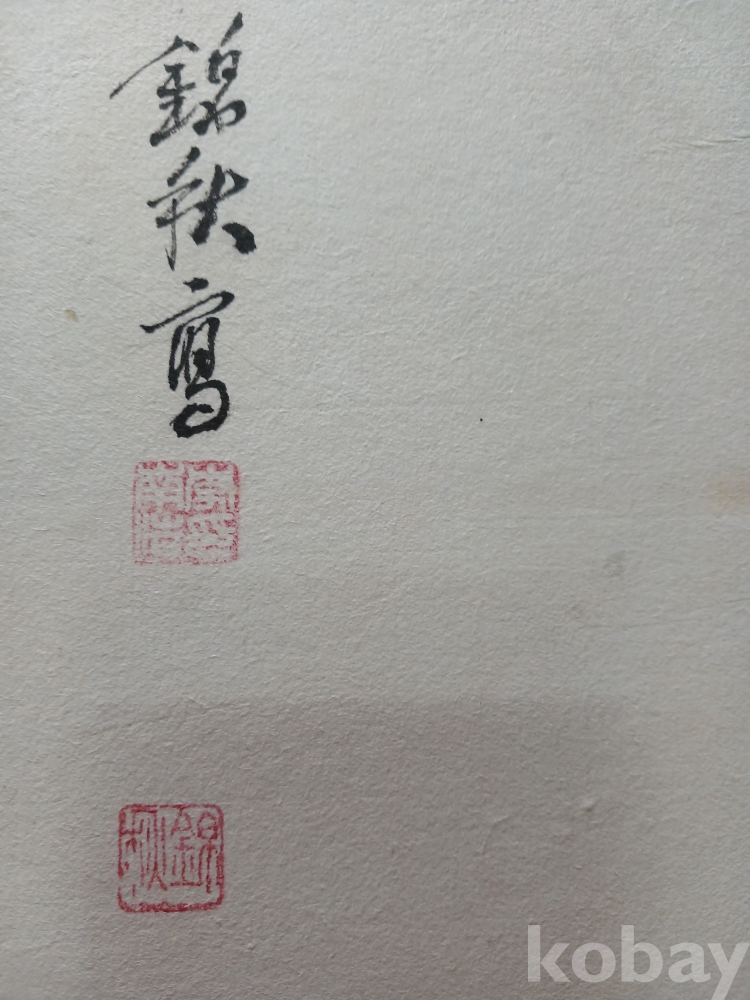 錦秋寫
錦秋
kobay